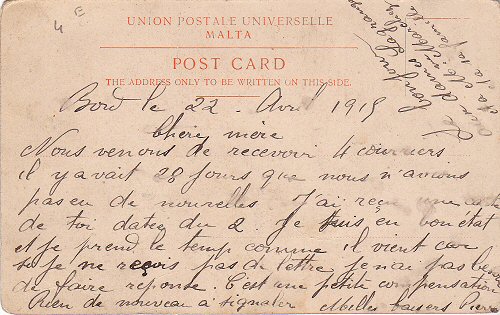 4 E
UNION POSTALE UNIVERSELLE
MALTA
POST CARD
THE ADDRESS ONLY TO BE WRITTEN ON THIS SIDE.
Bord le 22 Avril 1915
Chere mère
Nous venons de recevoir 4 courriers
il y avait 28 jours que nous n'avions
pas eu de nouvelles J'ai reçu une
de toi datée du 2. Je suis en bon état
et je prend le temp comme il vient car
si je ne reçois pas de lettre je n'ai pas
de faire réponse. C'est une petite compensation
Rien de nouveau a signaler Milles baisers Pierre
Le bonjour
aux dames Lagrange
et a Me
et a sa famille